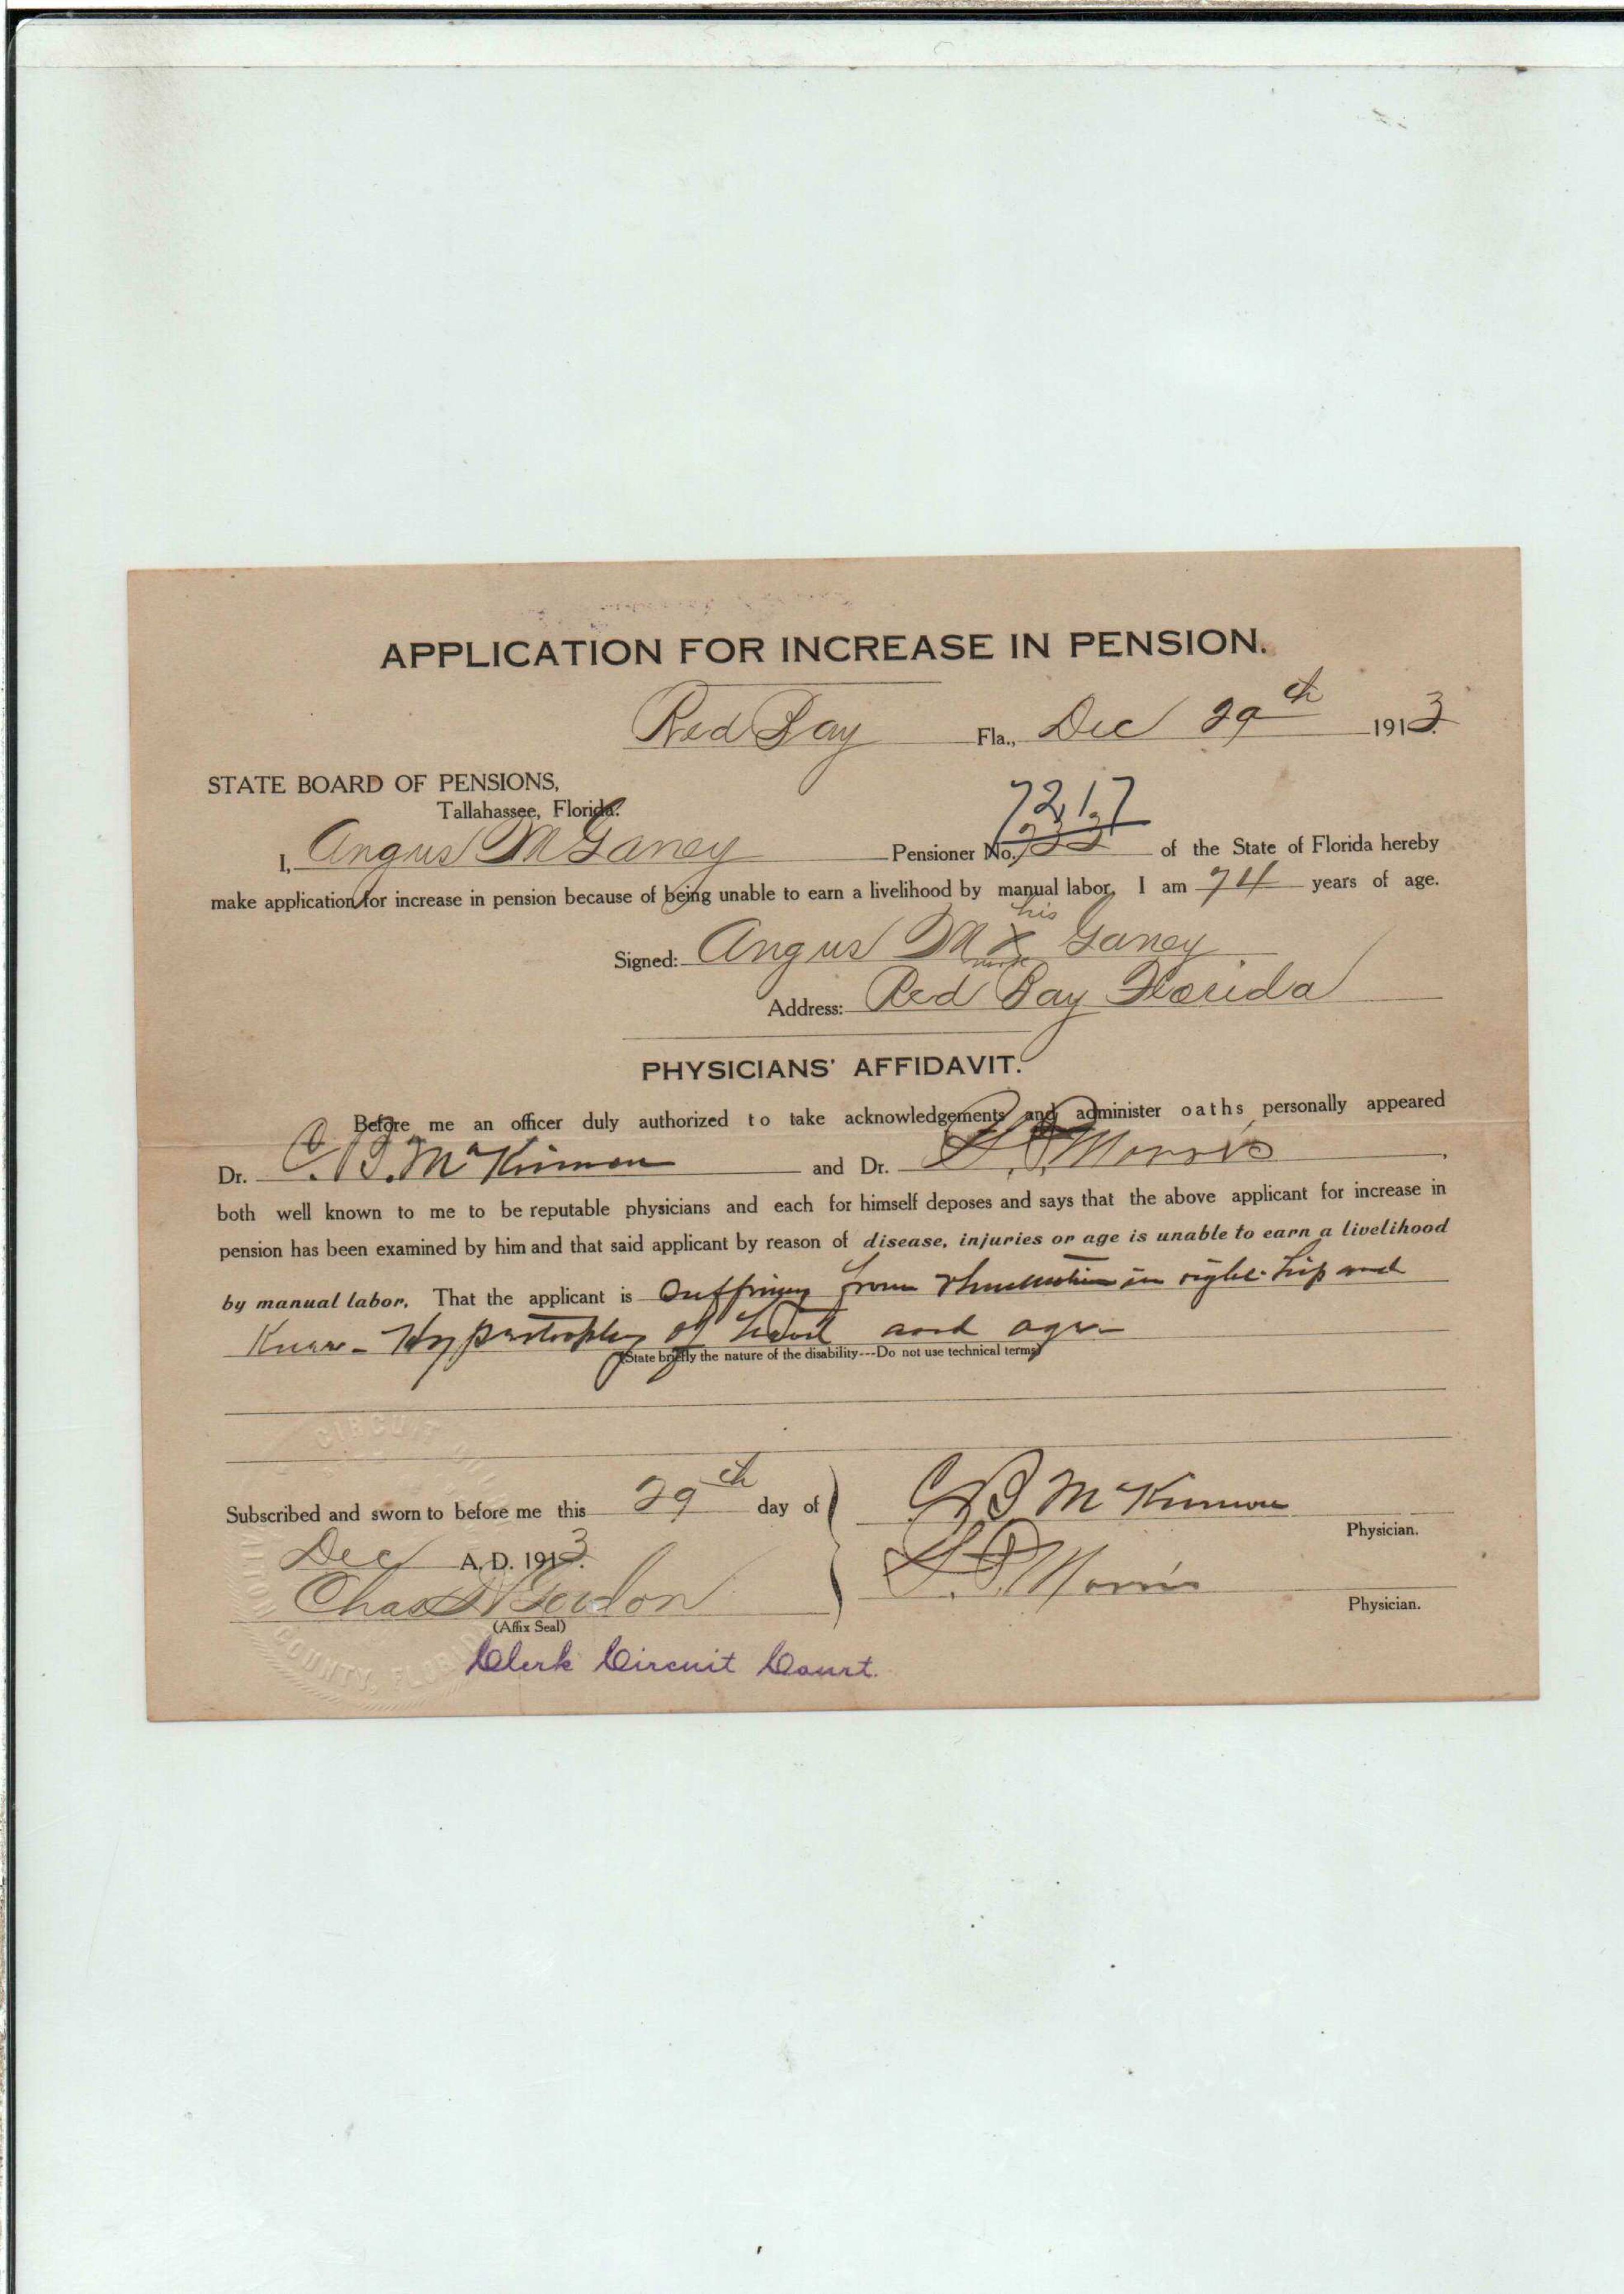 APPLICATION FOR INCREASE IN PENSION.
Red Bay Fla., Dec 29th 1913
STATE BOARD OF PENSIONS,
Tallahassee, Florida.
7217
I, Angus M Ganey Pensioner No. of the State of Florida hereby
make application for increase in pension because of being unable to earn a livelihood by manual labor. I am 74 years of age.
his
Signed: Angus M X Ganey
mark
Address: Red Bay Florida
PHYSICIANS' AFFIDAVIT.
Before me an officer duly authorized to take acknowledgements and administer oaths personally appeared
Dr. C. B. McKinnon and Dr. Morris
both well known to me to be reputable physicians and each for himself deposes and says that the above applicant for increase in
pension has been examined by him and that said applicant by reason of disease, injuries or age is unable to earn a livelihood
by manual labor. That the applicant is Suffring from rhumatism in right hip and
Knee - Hypertrophy of heart and age
(State briefly the nature of the disability---Do not use technical terms)
CIRCUIT
Subscribed and sworn to before me this 29th day of
C B McKinnon
Physician.
Dec A. D. 1913.
Morris
Physician.
Chas Gordon
(Affix Seal)
COUNTY, FLORIDA
Clerk Circuit Court.